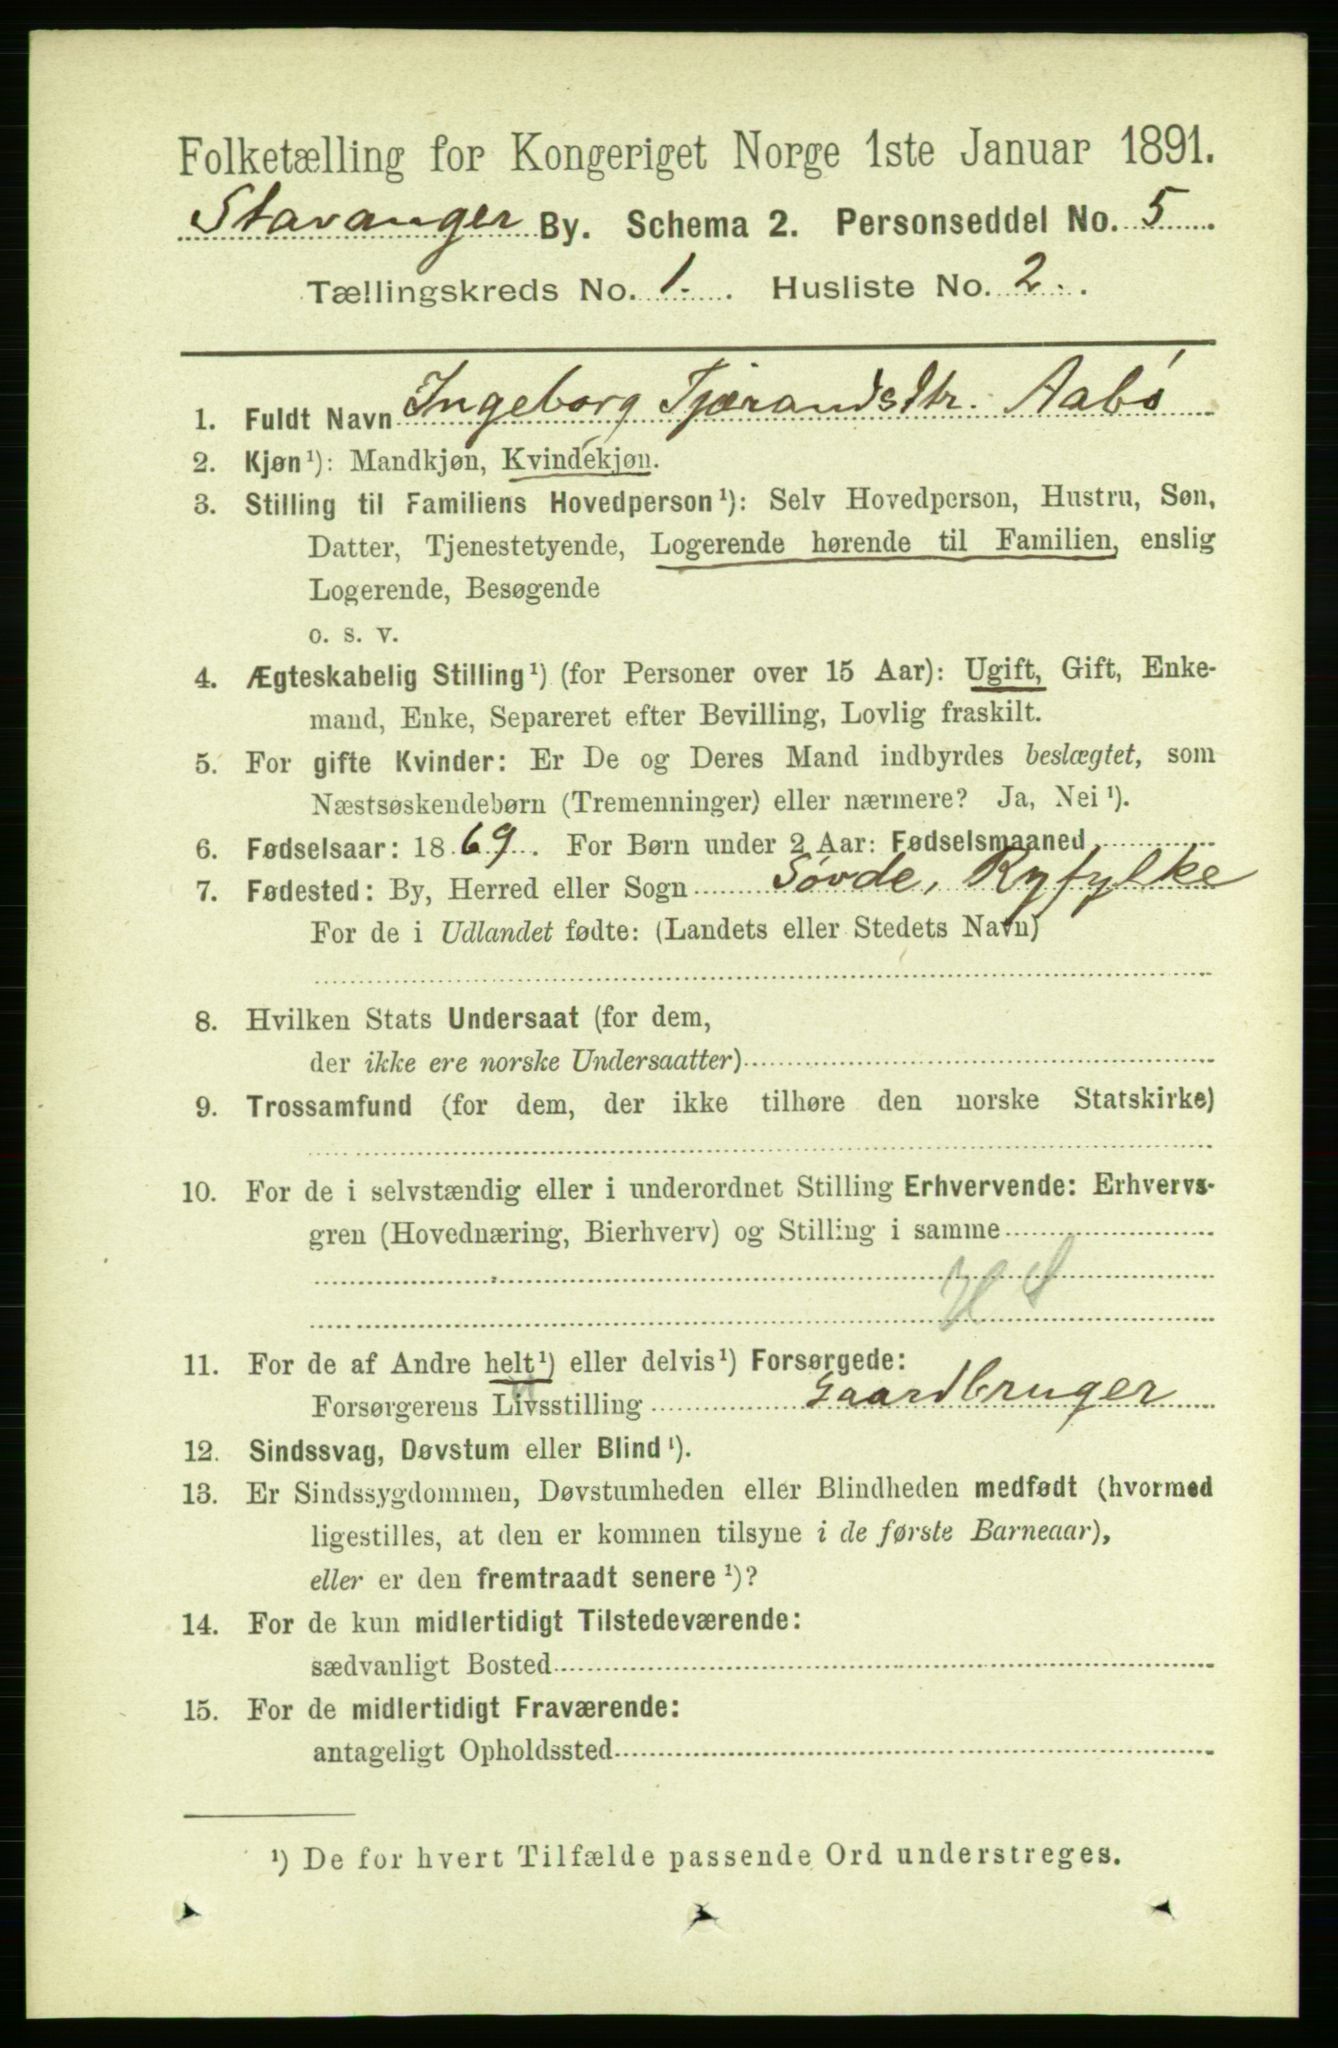 Folketælling for Kongeriget Norge 1ste Januar 1891.
Stavanger By. Schema 2. Personseddel No. 5
Tællingskreds No. 1. Husliste No. 2.
1. Fuldt Navn Ingeborg Tjærandsdtr. Aabø
2. Kjøn¹): Mandkjøn, Kvindekjøn.
3. Stilling til Familiens Hovedperson¹): Selv Hovedperson, Hustru, Søn,
Datter, Tjenestetyende, Logerende hørende til Familien, enslig
Logerende, Besøgende
o. s. v.
4. Ægteskabelig Stilling¹) (for Personer over 15 Aar): Ugift, Gift, Enke-
mand, Enke, Separeret efter Bevilling, Lovlig fraskilt.
5. For gifte Kvinder: Er De og Deres Mand indbyrdes beslægtet, som
Næstsøskendebørn (Tremenninger) eller nærmere? Ja, Nei¹).
6. Fødselsaar: 1869. For Børn under 2 Aar: Fødselsmaaned
7. Fødested: By, Herred eller Sogn Søvde, Ryfylke
For de i Udlandet fødte: (Landets eller Stedets Navn)
8. Hvilken Stats Undersaat (for dem,
der ikke ere norske Undersaatter)
9. Trossamfund (for dem, der ikke tilhøre den norske Statskirke)
10. For de i selvstændig eller i underordnet Stilling Erhvervende: Erhvervs-
gren (Hovednæring, Bierhverv) og Stilling i samme
11. For de af Andre helt¹) eller delvis¹) Forsørgede:
Forsørgerens Livsstilling Gaardbruger
12. Sindssvag, Døvstum eller Blind¹).
13. Er Sindssygdommen, Døvstumheden eller Blindheden medfødt (hvormed
ligestilles, at den er kommen tilsyne i de første Barneaar),
eller er den fremtraadt senere¹)?
14. For de kun midlertidigt Tilstedeværende:
sædvanligt Bosted
15. For de midlertidigt Fraværende:
antageligt Opholdssted
¹) De for hvert Tilfælde passende Ord understreges.